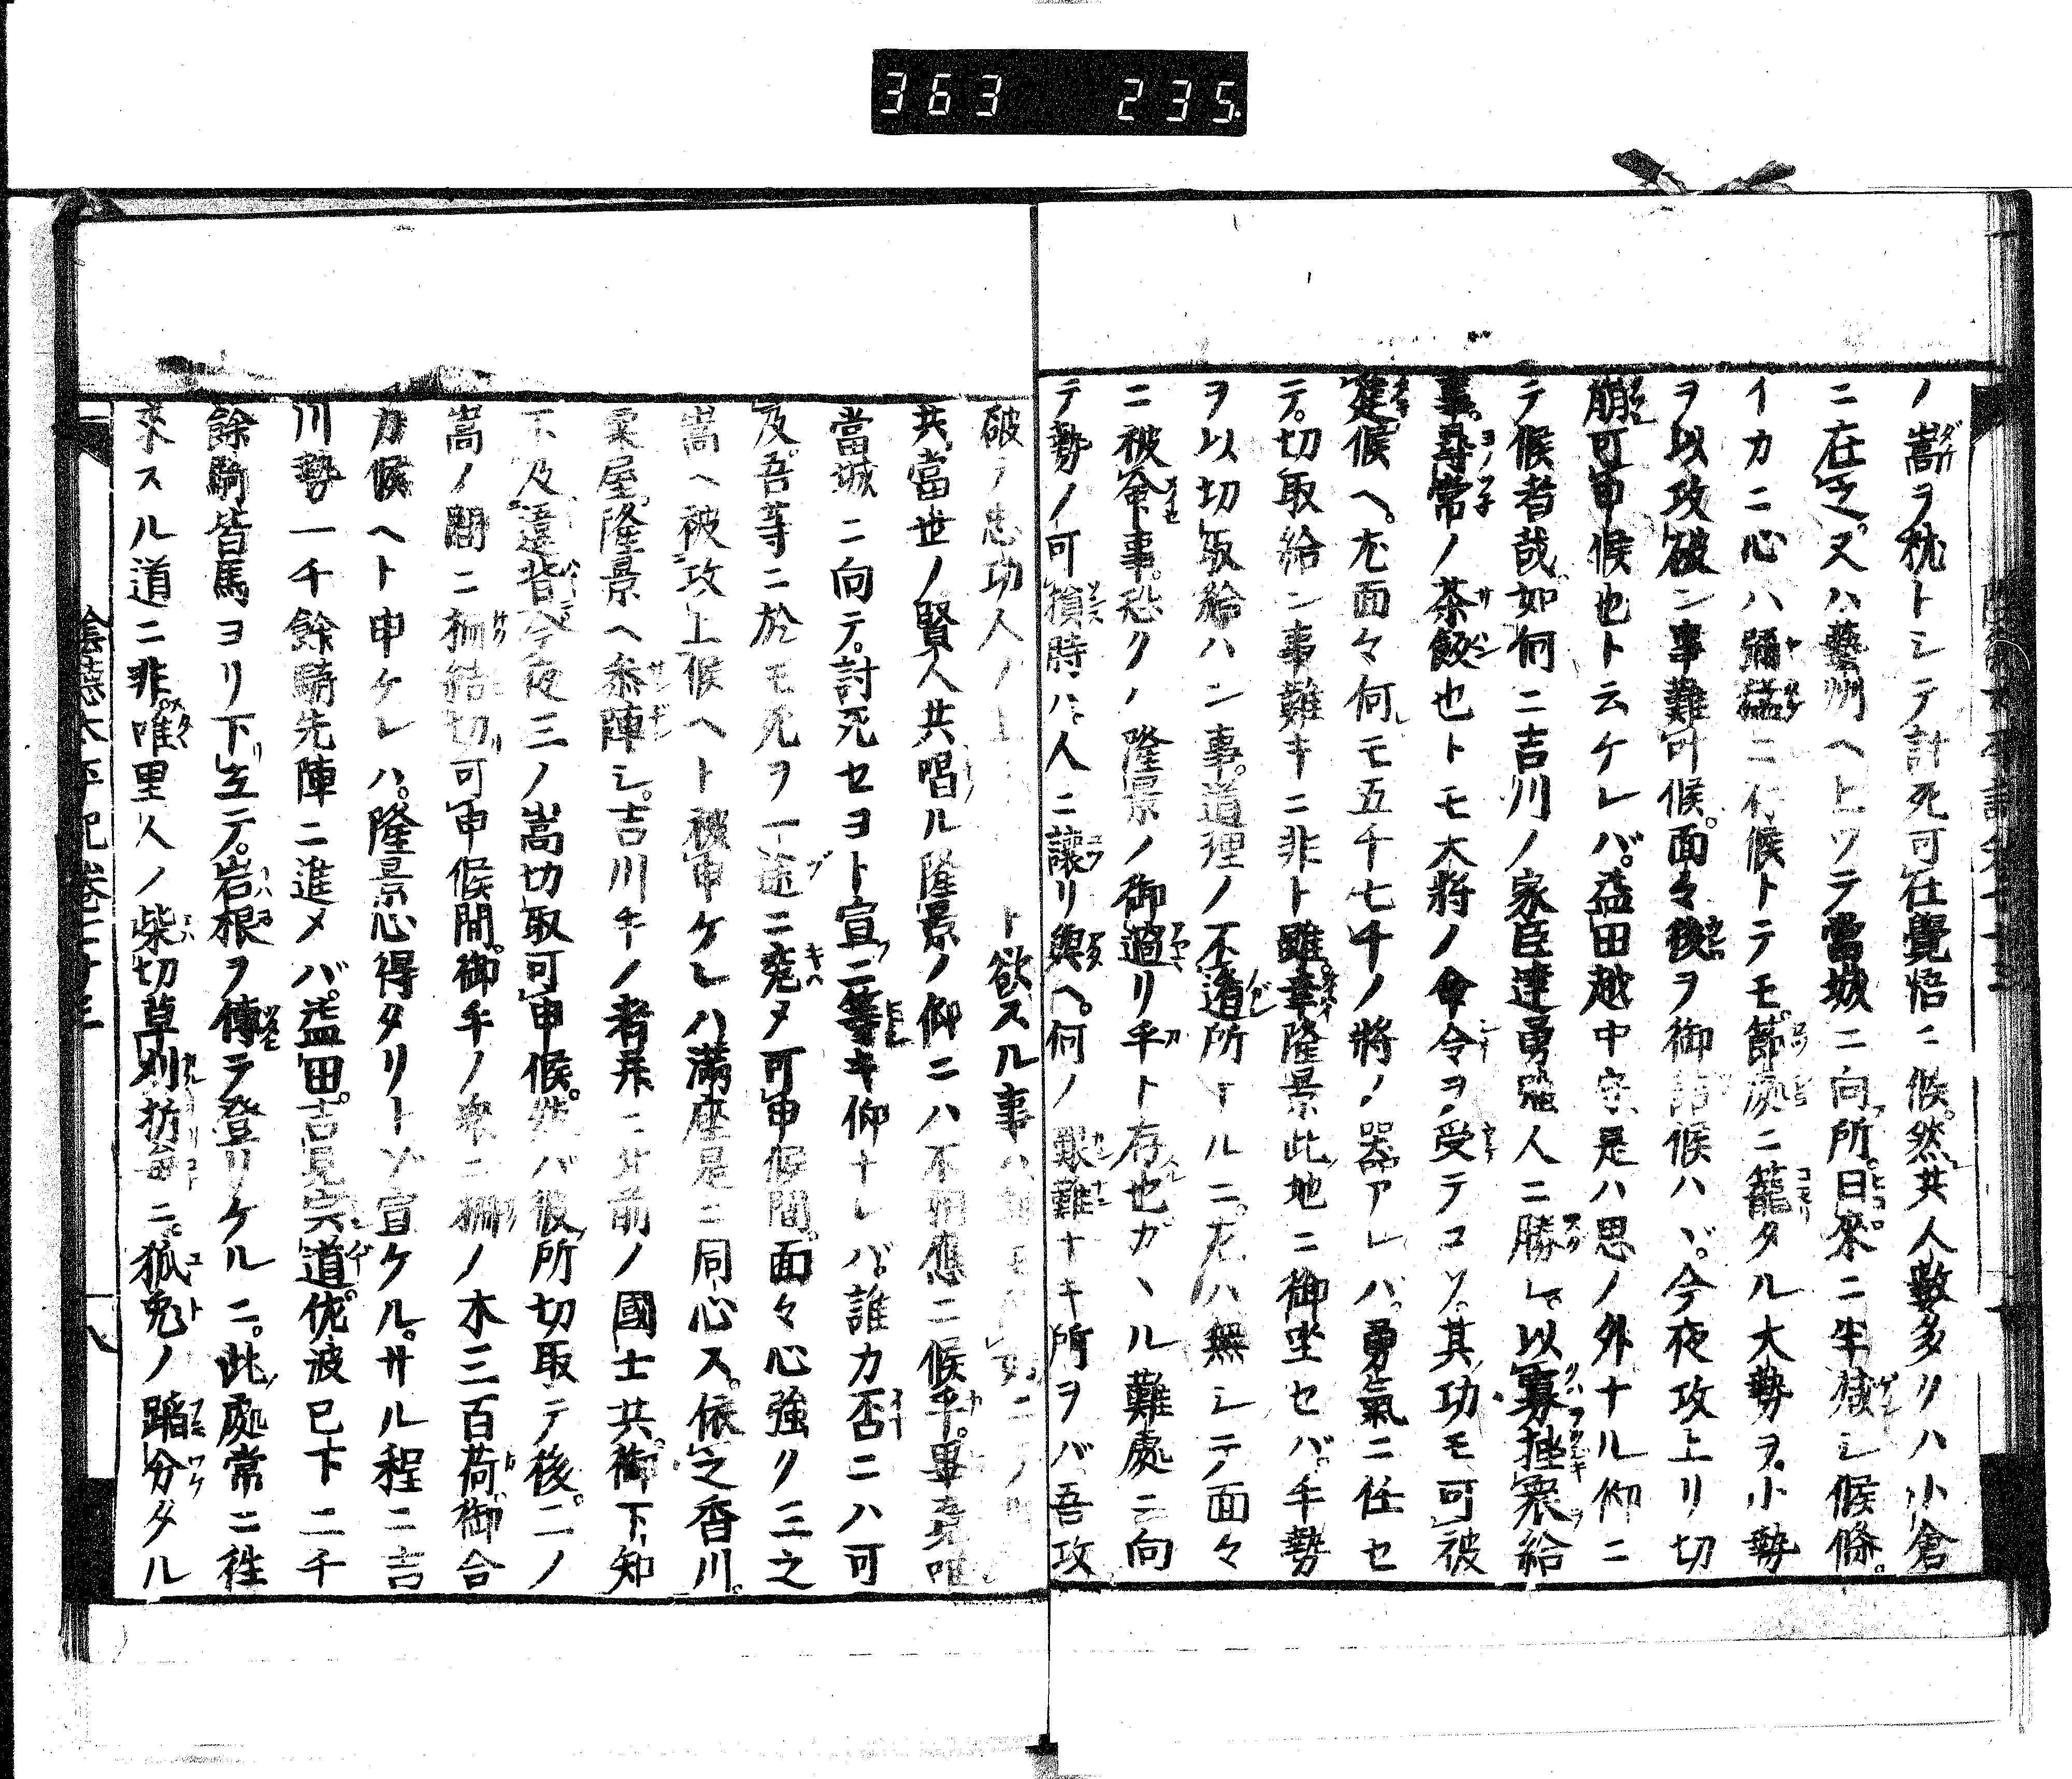 363 235
ノ嵩ヲ枕トシテ討死可仕覺悟ニ候。然共人數多クハ小倉
ニ在之。又ハ藝州ヘ上ツテ當城ニ向所。日來ニ半減シ候條。
イカニ心ハ彌猛ニ存候トテモ。節處ニ籠タル大勢ヲ。小勢
ヲ以攻破ン事難叶候。面々後ヲ御詰候ハヾ。今夜攻上リ切
崩可申候也ト云ケレバ。益田越中守是ハ思ノ外ナル仰ニ
テ候者哉。如何ニ吉川ノ家臣達勇雖人ニ勝レ。以寡挫衆給
事。尋常ノ茶飯也トモ大將ノ命令ヲ受テコソ。其功モ可被
建候ヘ。尤面々何モ五千七千ノ將ノ器アレバ。勇氣ニ任セ
テ。切取給ン事難キニ非ト雖。幸隆景此地ニ御坐セバ。手勢
ヲ以切取給ハン事。道理ノ不遁所ナルニ。左ハ無シテ面々
ニ被命事。恐クノ隆景ノ御過リ乎ト存也カヽル難處ニ向
テ勢ノ可損時ハ。人ニ讓リ與ヘ。何ノ艱難ナキ所ヲバ吾攻
破ノ忠功人ノ上 ト欲スル事ハ ニノ
共。當世ノ賢人共唱ル隆景ノ仰ニハ不相應ニ候乎。畢竟唯
當城ニ向テ。討死セヨト宣ニ等キ仰ナレバ。誰カ否ニハ可
及。吾等ニ於モ死ヲ一途ニ究メ可申候間。面々心強ク三之
嵩ヘ被攻上候ヘト被申ケレハ滿座是ニ同心ス。依之香川。
粟屋。隆景ヘ參陣シ。吉川手ノ者幷ニ廿前ノ國士共。御下知
不及違背今夜三ノ嵩切取可申候。然バ彼所切取テ後。二ノ
嵩ノ間ニ柵結切可申候間。御手ノ衆ニ柵ノ木三百荷御合
力候ヘト申ケレハ。隆景心得タリトゾ宣ケル。サル程ニ吉
川勢一千餘騎先陣ニ進メバ。益田。吉見宍道。佐波已下二千
餘騎皆馬ヨリ下立テ。岩根ヲ傳テ登リケルニ。此處常ニ往
來スル道ニ非。唯里人ノ柴切草刈抔 ニ。狐兎ノ蹈分タル
陰德太平記卷二十三 八